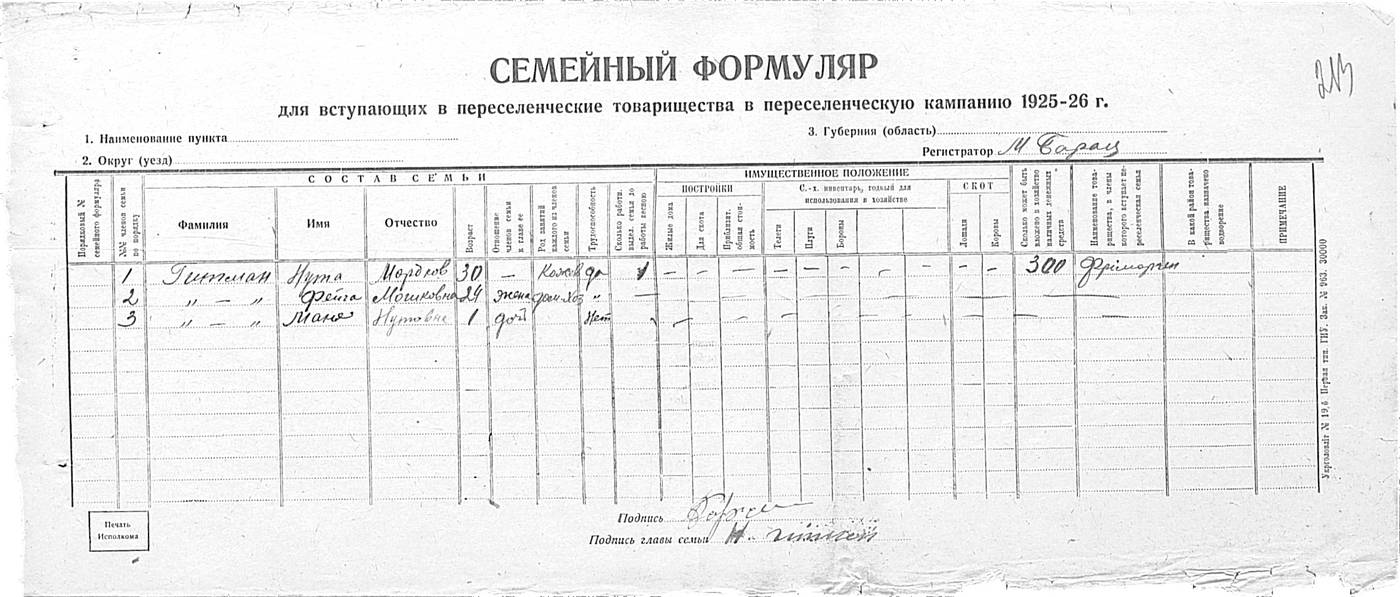 СЕМЕЙНЫЙ ФОРМУЛЯР
213
для вступающих в переселенческие товарищества в переселенческую кампанию 1925-26 г.
1. Наименование пункта
3. Губерния (область)
2. Округ (уезд)
Регистратор М Барац
Порядковый № семейного формуляра
№№ членов семьи по порядку
СОСТАВ СЕМЬИ
Фамилия
Имя
Отчество
Возраст
Отношение членов семьи к главе ее
Род занятий каждого из членов семьи
Трудоспособность
Сколько работн. выдел. семья до работы весною
ИМУЩЕСТВЕННОЕ ПОЛОЖЕНИЕ
ПОСТРОЙКИ
Жилые дома
Для скота
Приблизит. общая стоимость
С.-х. инвентарь, годный для использования в хозяйстве
Телеги
Плуги
Бороны
СКОТ
Лошади
Коровы
Сколько может быть вложено в хозяйство наличных денежных средств
Наименование товарищества, в члены которого вступает переселенческая семья
В какой район товарищества назначено водворение
ПРИМЕЧАНИЕ
1 Гитман Нута Мордков 30 — Кожев да 1 — — — — — — — — — — — 300
2 „ — „ Фейга Мошковна 24 жена дом. хоз „ —
3 „ — „ Маня Нутовна 1 доч нет —
Укрголовліт № 19,б Первая тип. ГИУ. Зак. № 963. 30000
Печать
Исполкома
Подпись
Подпись главы семьи Н.